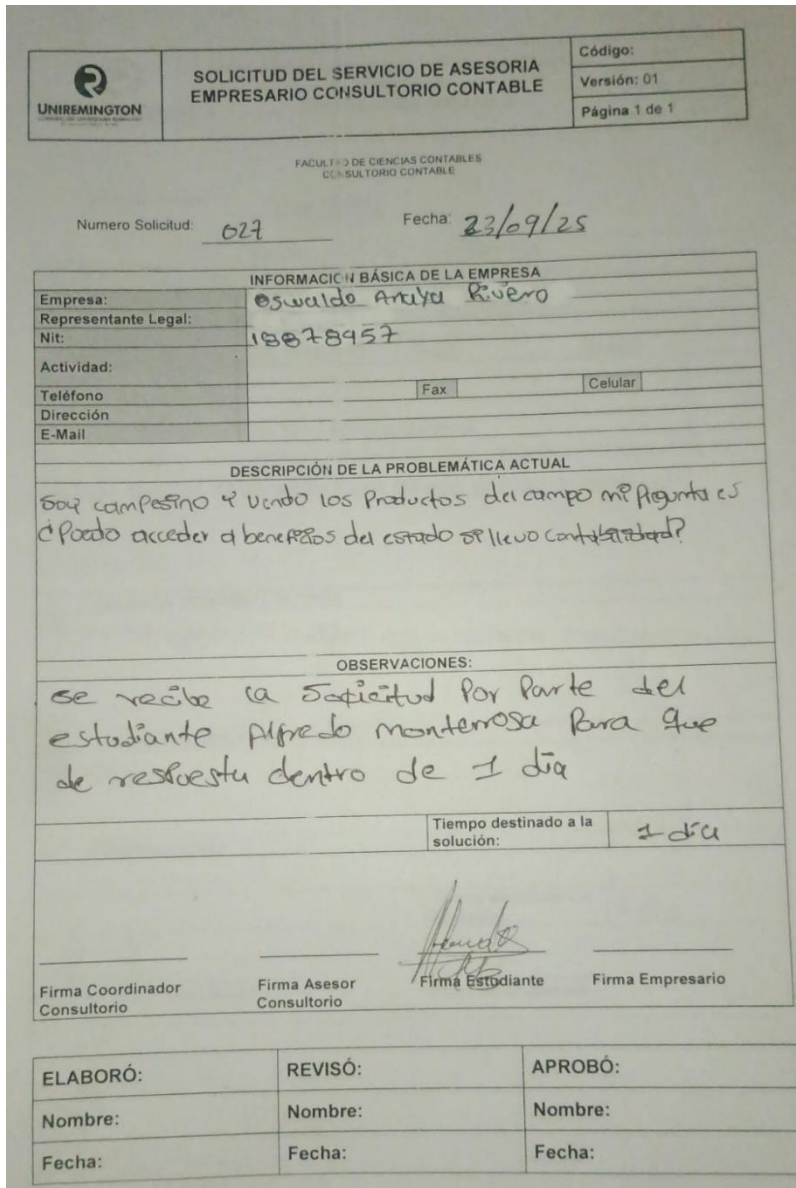 UNIREMINGTON
SOLICITUD DEL SERVICIO DE ASESORIA
EMPRESARIO CONSULTORIO CONTABLE
Código:
Versión: 01
Página 1 de 1
FACULTAD DE CIENCIAS CONTABLES
CONSULTORIO CONTABLE
Numero Solicitud: 027 Fecha: 23/09/25
INFORMACION BÁSICA DE LA EMPRESA
Empresa: Oswaldo Anaya Rivero
Representante Legal:
Nit: 18878957
Actividad:
Teléfono Fax Celular
Dirección
E-Mail
DESCRIPCIÓN DE LA PROBLEMÁTICA ACTUAL
Soy campesino y vendo los Productos del campo mi Pregunta es
¿Puedo acceder a beneficios del estado si llevo contabilidad?
OBSERVACIONES:
se recibe la Solicitud Por Parte del
estudiante Alfredo monterrosa Para que
de respuesta dentro de 1 día
Tiempo destinado a la
solución: 1 día
Firma Coordinador
Consultorio
Firma Asesor
Consultorio
Firma Estudiante
Firma Empresario
ELABORÓ: REVISÓ: APROBÓ:
Nombre: Nombre: Nombre:
Fecha: Fecha: Fecha: